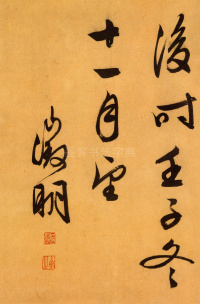 後时壬子冬
十一月望
徵明